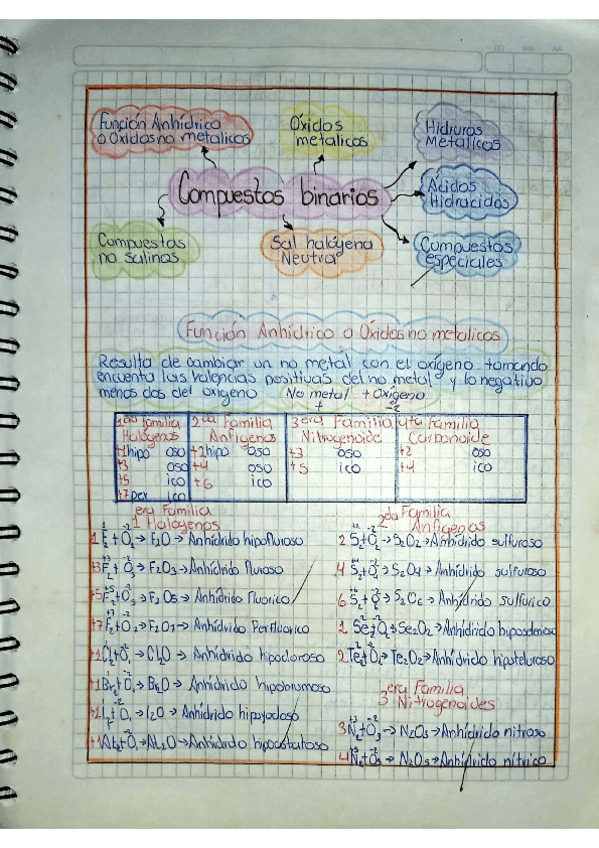 Función Anhídrico
o Oxidos no metalicos
Óxidos
metalicos
Hidruros
Metalicos
Compuestos binarios
Ácidos
Hidracidos
Compuestas
no Salinas
Sal halógena
Neutra
Compuestos
especiales
Función Anhídrico o Oxidos no metalicos
Resulta de cambiar un no metal con el oxígeno tomando
encuenta las valencias positivas del no metal y lo negativo
menos dos del oxigeno No metal + Oxígeno
+ -2
1era Familia
Halógenos
+1hipo oso
+3 oso
+5 ico
+7per ico
2da Familia
Anfigenas
+2hipo oso
+4 oso
+6 ico
3era Familia
Nitrogenoide
+3 oso
+5 ico
4ta Familia
Carbonoide
+2 oso
+4 ico
1era Familia
Halogenos
F2+O2→F2O→Anhídrido hipofluroso
+3F2+O2→F2O3→Anhídrido fluroso
+5F2+O2→F2O5→Anhídrido Fluorico
+7F2+O2→F2O7→Anhídrido Perfluorico
Cl2O→Anhídrido hipocloroso
Anhídrido hipobromoso
I2O→Anhídrido hipoyodoso
At2O→Anhídrido
2da Familia
Anfigenas
2 S2+O2→S2O2→Anhídrido sulfuroso
4 S2+O2→S2O4→Anhídrido sulfuroso
6 S2O6→Anhídrido sulfúrico
Se2O2→Anhídrido
2 Te2O2→Anhídrido hipoteluroso
3era Familia
Nitrogenoides
3 N2O3→Anhídrido nitroso
4 N2O5→Anhídrido nítrico